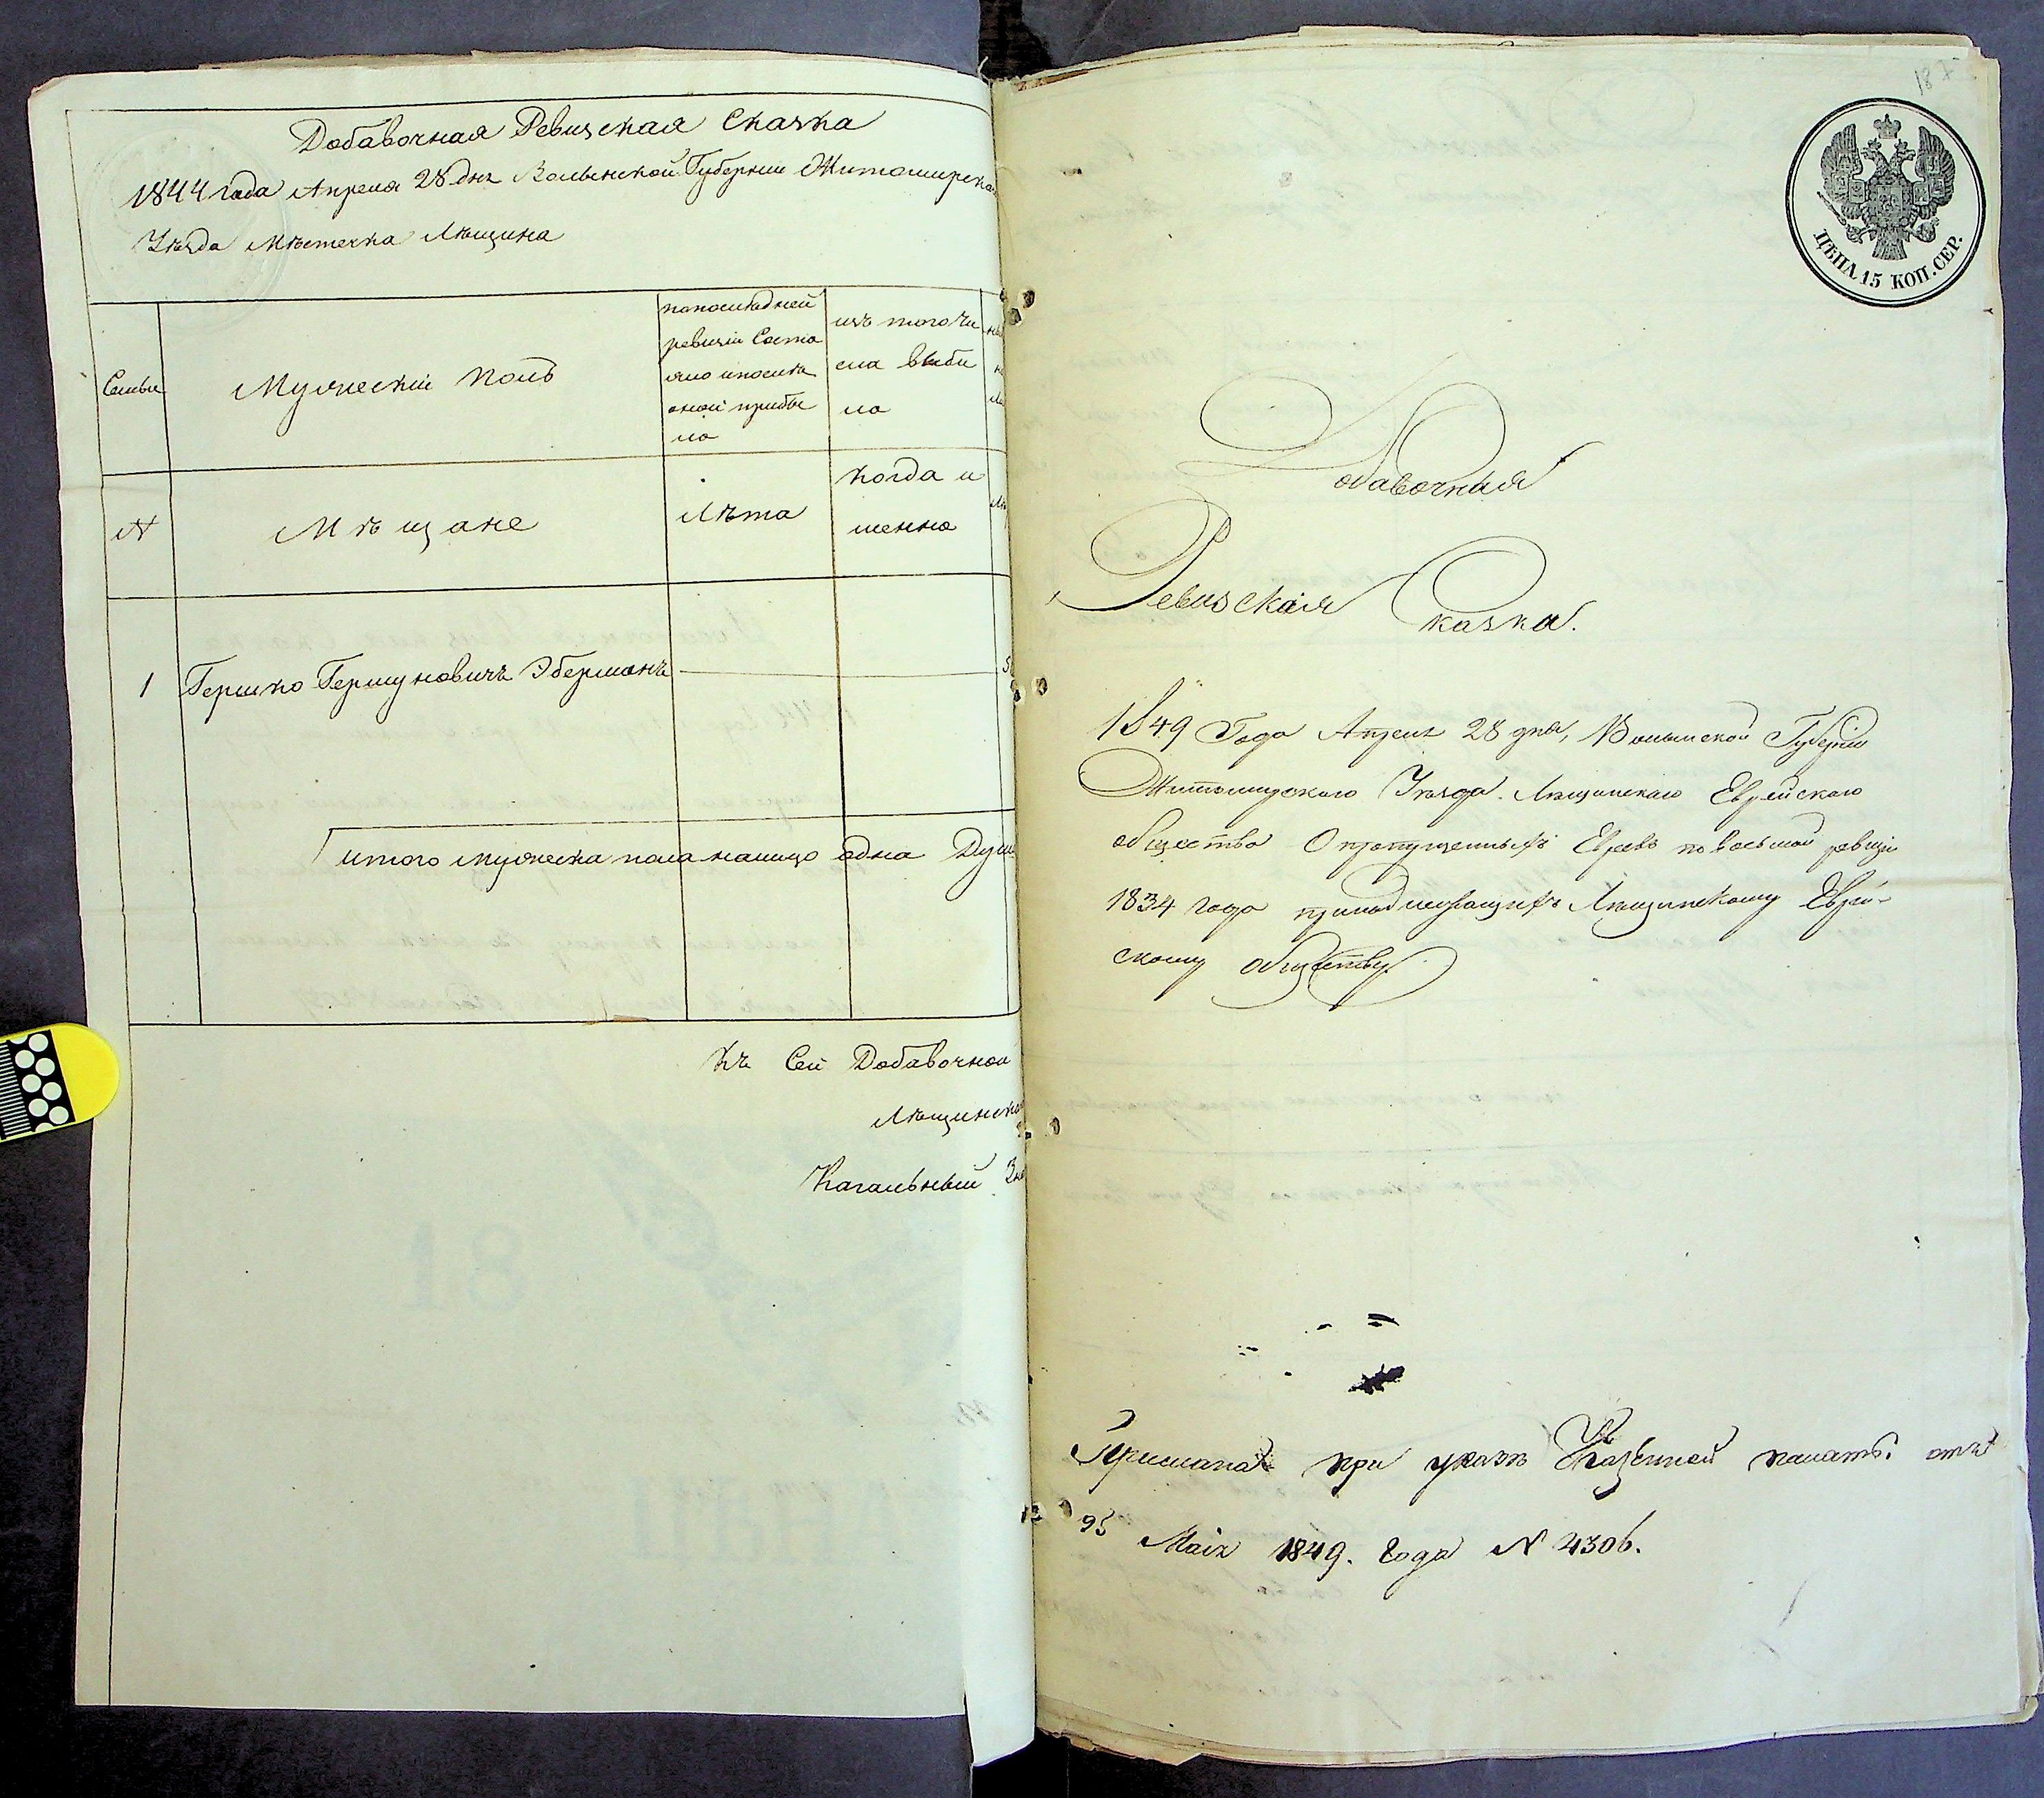 Добавочная Ревизская Сказка
1844 года Апреля 28 дня Волынской Губернии Житомирска
Уѣзда Мѣстечка Лѣщина
Семьи
Мужескій полъ
попослѣдней
ревизіи Состо
яло ипослѣ
оной прибы
ло
изъ того чи
сла выбы
ло
№
Мѣщане
Лѣта
когда и
менно
1 Гершко Гершуновичъ Эберманъ
итого мужеска пола налицо одна Душ
Къ Сей Добавочной
Лѣщинско
Кагальный
187
ЦѢНА 15 КОП. СЕР.
Добавочная
Ревизская Сказка.
1849 Года Апреля 28 дня, Волынской Губерніи
Житомирскаго Уѣзда. Лѣщинскаго Еврейскаго
общества О пропущенныхъ Евреевъ по восьмой ревизіи
1834 года принадлежащихъ Лѣщинскому Еврей-
скому обществу
Прислана при указѣ Казенной палаты отъ
Маія 1849. года № 4306.